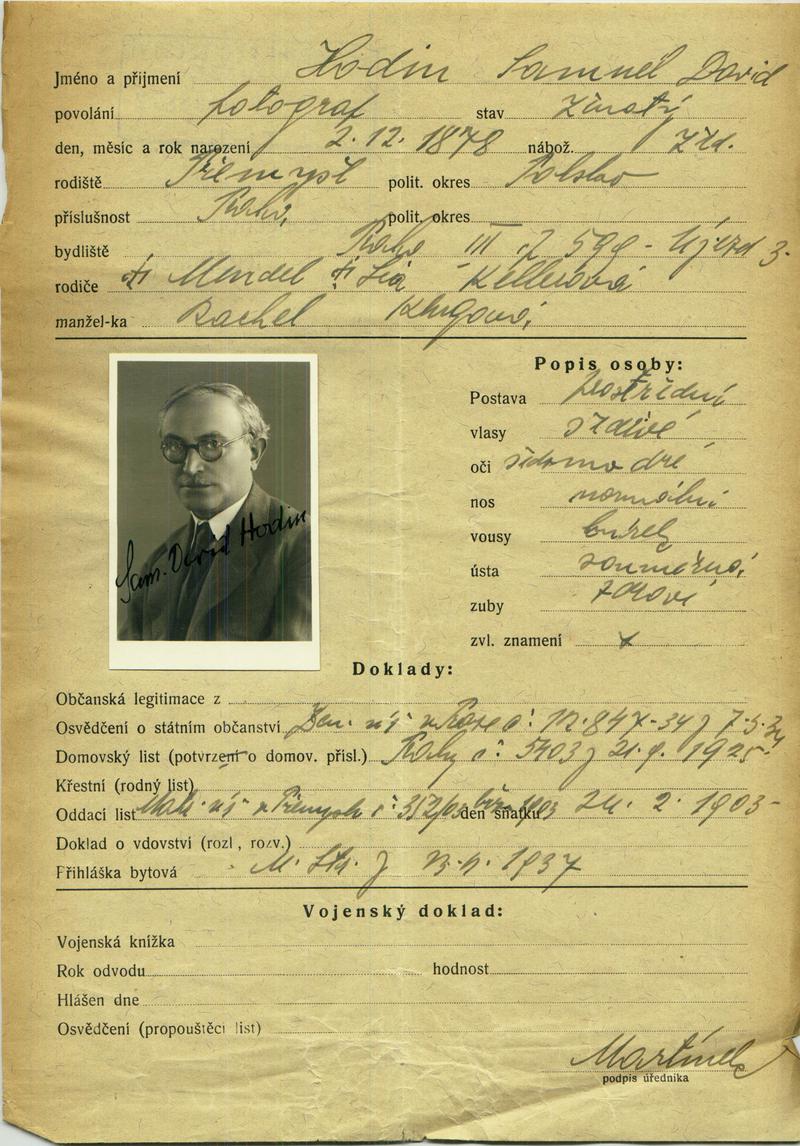 Jméno a příjmení Hodin Samuel David
povolání fotograf stav ženatý
den, měsíc a rok narození 2. 12. 1878 nábož. žid.
rodiště Přemyšl polit. okres Polsko
příslušnost Praha polit. okres
bydliště Praha III čp 599 - Újezd 3.
rodiče Mendel Lea Kellerová
manžel-ka Rachel
Popis osoby:
Postava prostřední
vlasy šedivé
oči šedomodré
nos normální
vousy
ústa souměrná
zuby zdravé
zvl. znamení x
Sam. David Hodin
Doklady:
Občanská legitimace z
Osvědčení o státním občanství Zem. úř. v Praze č: 847-34 z 7.5.34
Domovský list (potvrzení o domov. přísl.) Prahy č: 5403 z 21.9. 1925
Křestní (rodný list)
Oddací list Matr. úř. v Přemyšli č: 1903 den sňatku 24. 2. 1903-
Doklad o vdovství (rozl, rozv.)
Přihláška bytová M. Str. z 1937
Vojenský doklad:
Vojenská knížka
Rok odvodu hodnost
Hlášen dne
Osvědčení (propouštěcí list)
Martínek
podpis úředníka